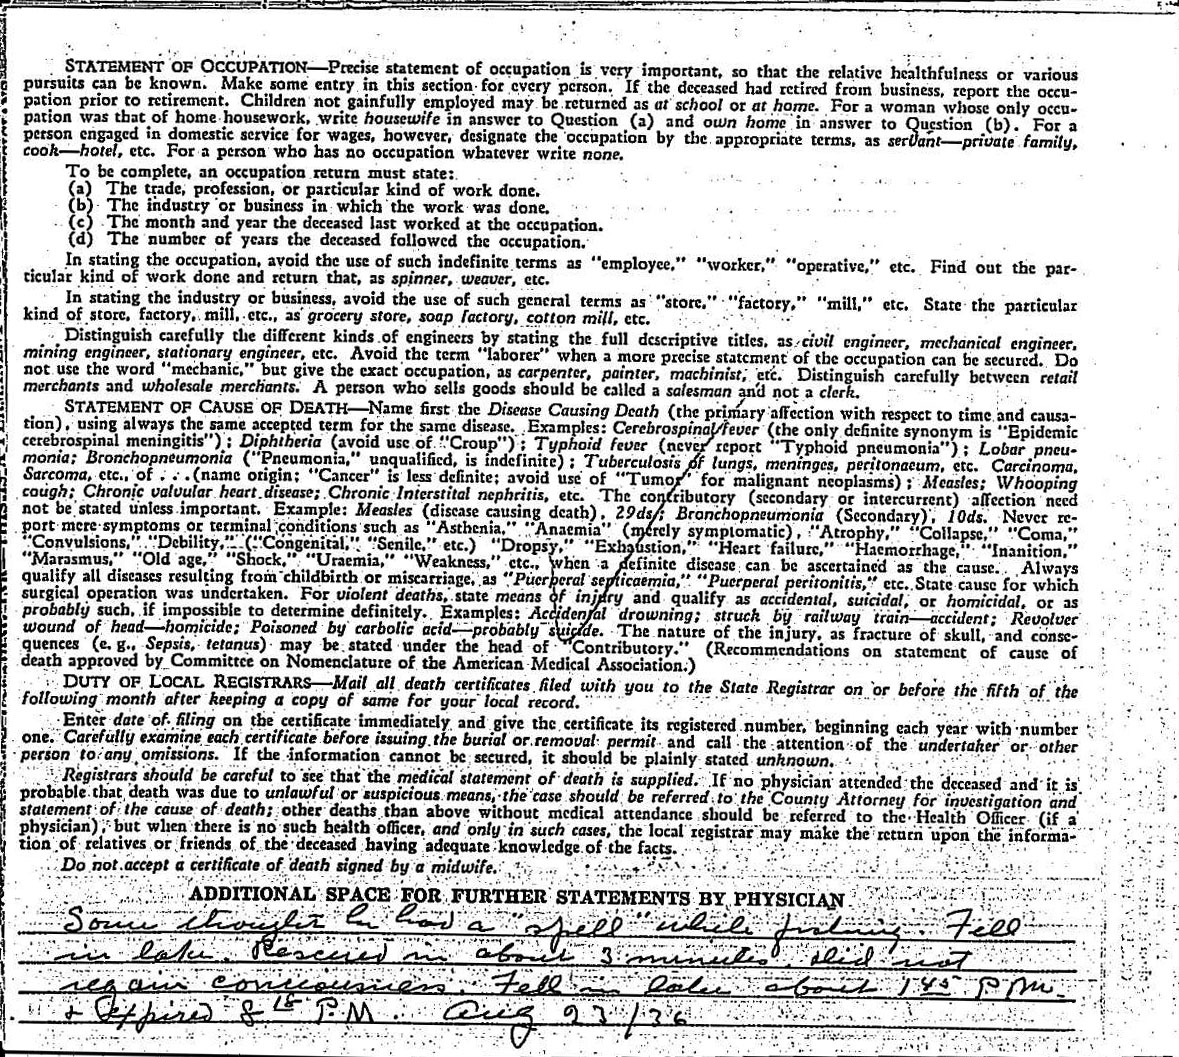 STATEMENT OF OCCUPATION—Precise statement of occupation is very important, so that the relative healthfulness or various
pursuits can be known. Make some entry in this section for every person. If the deceased had retired from business, report the occu-
pation prior to retirement. Children not gainfully employed may be returned as at school or at home. For a woman whose only occu-
pation was that of home housework, write housewife in answer to Question (a) and own home in answer to Question (b). For a
person engaged in domestic service for wages, however, designate the occupation by the appropriate terms, as servant—private family,
cook—hotel, etc. For a person who has no occupation whatever write none.
To be complete, an occupation return must state:
(a) The trade, profession, or particular kind of work done.
(b) The industry or business in which the work was done.
(c) The month and year the deceased last worked at the occupation.
(d) The number of years the deceased followed the occupation.
In stating the occupation, avoid the use of such indefinite terms as "employee," "worker," "operative," etc. Find out the par-
ticular kind of work done and return that, as spinner, weaver, etc.
In stating the industry or business, avoid the use of such general terms as "store," "factory," "mill," etc. State the particular
kind of store, factory, mill, etc., as grocery store, soap factory, cotton mill, etc.
Distinguish carefully the different kinds of engineers by stating the full descriptive titles, as civil engineer, mechanical engineer,
mining engineer, stationary engineer, etc. Avoid the term "laborer" when a more precise statement of the occupation can be secured. Do
not use the word "mechanic," but give the exact occupation, as carpenter, painter, machinist, etc. Distinguish carefully between retail
merchants and wholesale merchants. A person who sells goods should be called a salesman and not a clerk.
STATEMENT OF CAUSE OF DEATH—Name first the Disease Causing Death (the primary affection with respect to time and causa-
tion), using always the same accepted term for the same disease. Examples: Cerebrospinal fever (the only definite synonym is "Epidemic
cerebrospinal meningitis"); Diphtheria (avoid use of "Croup"); Typhoid fever (never report "Typhoid pneumonia"); Lobar pneu-
monia; Bronchopneumonia ("Pneumonia," unqualified, is indefinite); Tuberculosis of lungs, meninges, peritonaeum, etc. Carcinoma,
Sarcoma, etc., of . . . (name origin; "Cancer" is less definite; avoid use of "Tumor" for malignant neoplasms); Measles; Whooping
cough; Chronic valvular heart disease; Chronic Interstital nephritis, etc. The contributory (secondary or intercurrent) affection need
not be stated unless important. Example: Measles (disease causing death), 29ds; Bronchopneumonia (Secondary), 10ds. Never re-
port mere symptoms or terminal conditions such as "Asthenia," "Anaemia" (merely symplomatic), "Atrophy," "Collapse," "Coma,"
"Convulsions," "Debility," ("Congenital," "Senile," etc.) "Dropsy," "Exhaustion," "Heart failure," "Haemorrhage," "Inanition,"
"Marasmus," "Old age," "Shock," "Uraemia," "Weakness," etc., when a definite disease can be ascertained as the cause. Always
qualify all diseases resulting from childbirth or miscarriage, as "Puerperal septicaemia," "Puerperal peritonitis," etc. State cause for which
surgical operation was undertaken. For violent deaths, state means of injury and qualify as accidental, suicidal, or homicidal, or as
probably such, if impossible to determine definitely. Examples: Accidental drowning; struck by railway train—accident; Revolver
wound of head—homicide; Poisoned by carbolic acid—probably suicide. The nature of the injury, as fracture of skull, and conse-
quences (e. g., Sepsis, tetanus) may be stated under the head of "Contributory." (Recommendations on statement of cause of
death approved by Committee on Nomenclature of the American Medical Association.)
DUTY OF LOCAL REGISTRARS—Mail all death certificates filed with you to the State Registrar on or before the fifth of the
following month after keeping a copy of same for your local record.
Enter date of filing on the certificate immediately and give the certificate its registered number, beginning each year with number
one. Carefully examine each certificate before issuing the burial or removal permit and call the attention of the undertaker or other
person to any omissions. If the information cannot be secured, it should be plainly stated unknown.
Registrars should be careful to see that the medical statement of death is supplied. If no physician attended the deceased and it is
probable that death was due to unlawful or suspicious means, the case should be referred to the County Attorney for investigation and
statement of the cause of death; other deaths than above without medical attendance should be referred to the Health Officer (if a
physician), but when there is no such health officer, and only in such cases, the local registrar may make the return upon the informa-
tion of relatives or friends of the deceased having adequate knowledge of the facts.
Do not accept a certificate of death signed by a midwife.
ADDITIONAL SPACE FOR FURTHER STATEMENTS BY PHYSICIAN
Some thought he had a "spell" while fishing. Fell
in lake. Rescued in about 3 minutes. Did not
regain conciousness. Fell in lake about 1 45 P.M.
+ Expired 8 15 P.M. Aug 23/36